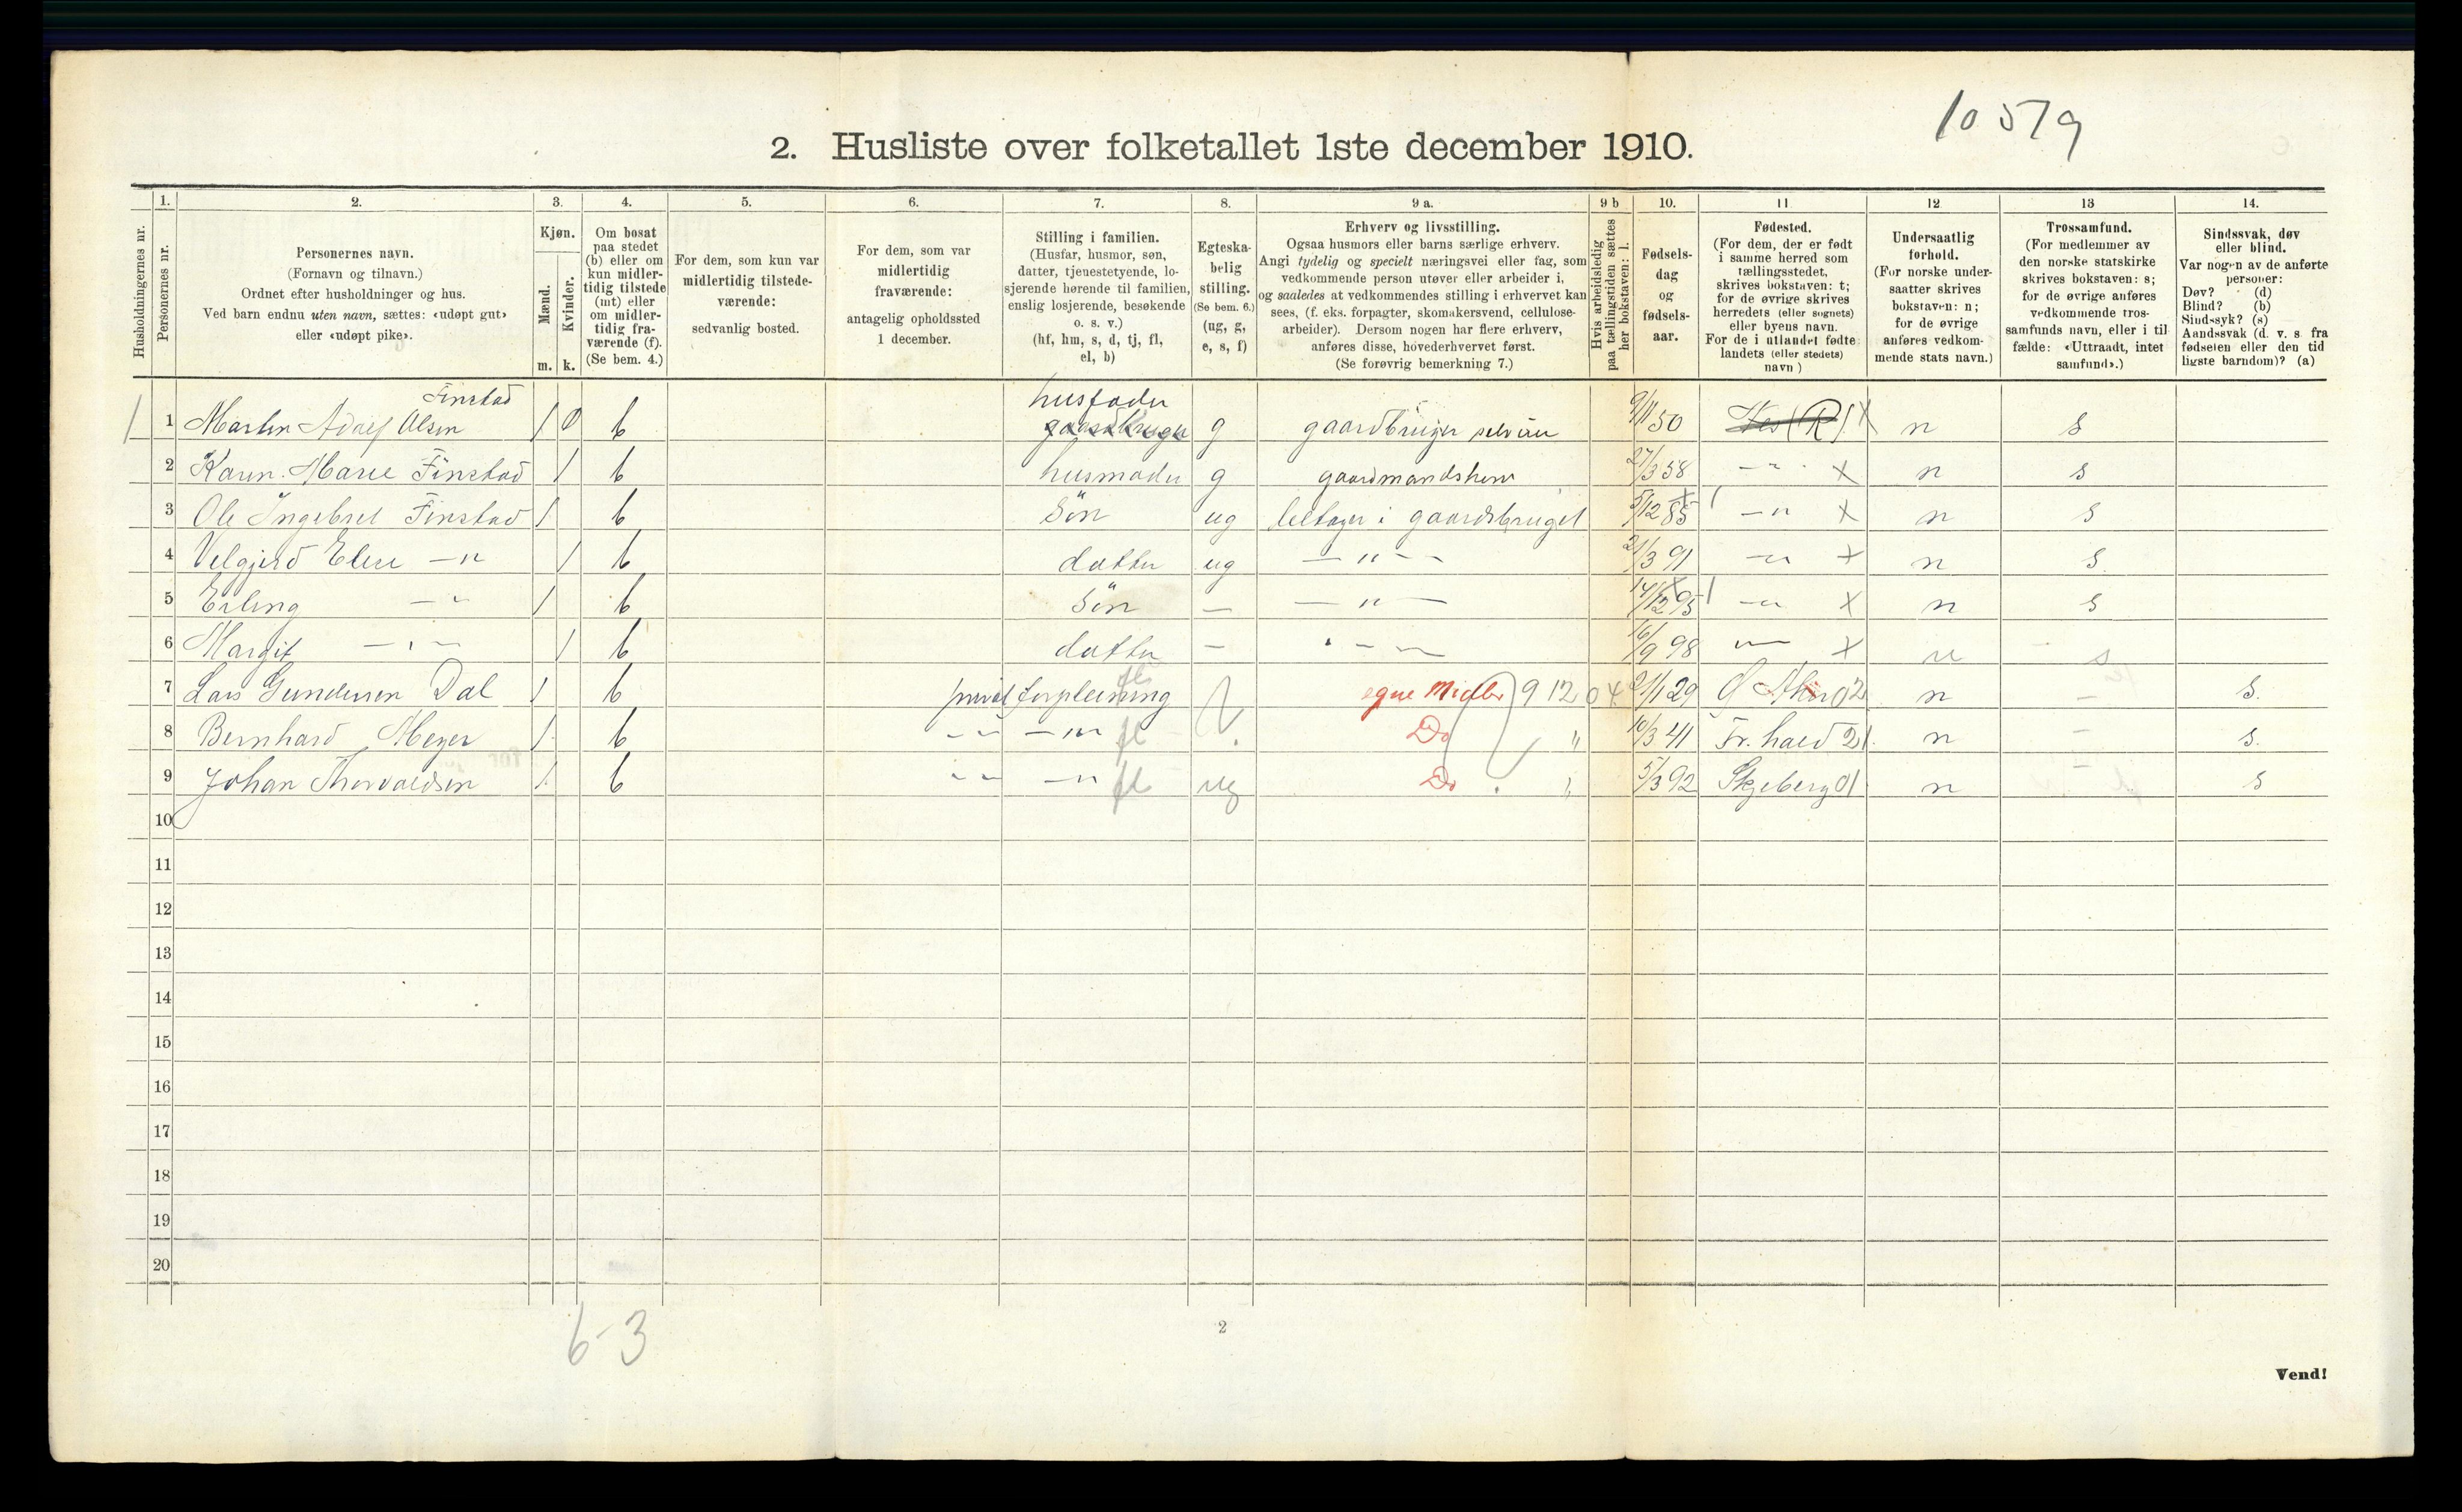 10579
2. Husliste over folketallet 1ste december 1910.
1. 2. 3. 4. 5. 6. 7. 8. 9 a. 9 b 10. 11 12 13 14.
Husholdningernes nr.
Personernes nr.
Personernes navn.
(Fornavn og tilnavn.)
Ordnet efter husholdninger og hus.
Ved barn endnu uten navn, sættes: «udøpt gut»
eller «udøpt pike».
Kjøn.
Mænd.
Kvinder.
m. k.
Om bosat
paa stedet
(b) eller om
kun midler-
tidig tilstede
(mt) eller
om midler-
tidig fra-
værende (f).
(Se bem. 4.)
For dem, som kun var
midlertidig tilstede-
værende:
sedvanlig bosted.
For dem, som var
midlertidig
fraværende:
antagelig opholdssted
1 december.
Stilling i familien.
(Husfar, husmor, søn,
datter, tjenestetyende, lo-
sjerende hørende til familien,
enslig losjerende, besøkende
o. s. v.)
(hf, hm, s, d, tj, fl,
el, b)
Egteska-
belig
stilling.
(Se bem. 6.)
(ug, g,
e, s, f)
Erhverv og livsstilling.
Ogsaa husmors eller barns særlige erhverv.
Angi tydelig og specielt næringsvei eller fag, som
vedkommende person utøver eller arbeider i,
og saaledes at vedkommendes stilling i erhvervet kan
sees, (f. eks. forpagter, skomakersvend, cellulose-
arbeider). Dersom nogen har flere erhverv,
anføres disse, hovederhvervet først.
(Se forøvrig bemerkning 7.)
Hvis arbeidsledig
paa tællingstiden sættes
her bokstaven: l.
Fødsels-
dag
og
fødsels-
aar.
Fødested.
(For dem, der er født
i samme herred som
tællingsstedet,
skrives bokstaven: t;
for de øvrige skrives
herredets (eller sognets)
eller byens navn.
For de i utlandet fødte
landets (eller stedets)
navn)
Undersaatlig
forhold.
(For norske under-
saatter skrives
bokstaven: n;
for de øvrige
anføres vedkom-
mende stats navn.)
Trossamfund.
(For medlemmer av
den norske statskirke
skrives bokstaven: s;
for de øvrige anføres
vedkommende tros-
samfunds navn, eller i til-
fælde: «Uttraadt, intet
samfund».)
Sindssvak, døv
eller blind.
Var nogen av de anførte
personer:
Døv? (d)
Blind? (b)
Sindssyk? (s)
Aandssvak (d. v. s. fra
fødselen eller den tid
ligste barndom)? (a)
Finstad husfader
1 1 Martin Adolf Olsen 1 0 b gaardbruger g gaardbruger selveier 9/11 50 Nes (R) X n s
2 Karen Marie Finstad 1 b husmoder g gaardmandskone 27/3 58 -"- X n s
3 Ole Ingebret Finstad 1 b Søn ug deltager i gaardsbruget 5/12 85 -"- X n s
4 Velgjerd Elise -"- 1 b datter ug -"- 21/3 91 -"- X n s
5 Erling -"- 1 b Søn - -"- 14/12 95 -"- X n s
6 Margit -"- 1 b datter - -"- 16/9 98 -"- X n s
7 Lars Gundersen Dal 1 b privat forpleining fl egne Midler 9 12 04 21/1 29 02 n - s.
8 Bernhard Meyer 1 b -"- -"- fl Do " 10/3 41 Fr. hald 21 n - s.
9 Johan Thorvaldsen 1 b -"- -"- fl ug Do " 5/3 92 Skjeberg 01 n - s
10
11
12
13
14
15
16
17
18
19
20
6-3
2
Vend!